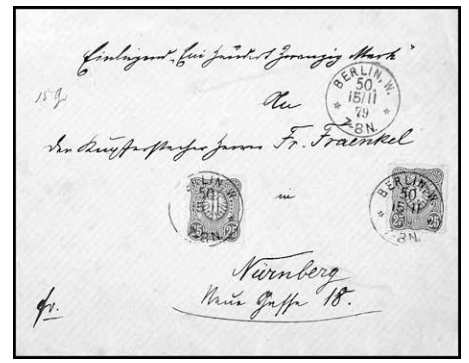 Einliegend „Ein Hundert Zwanzig Mark“
15 g
BERLIN. W.
50.
15/11
79
7-8N.
An
den Kupferstecher Herrn Fr. Fraenkel
BERLIN. W.
50
15
8N.
25 25
in
BERLIN. W.
50
15/11
8N.
25 25
Nürnberg
Neue Gasse 18.
fr.